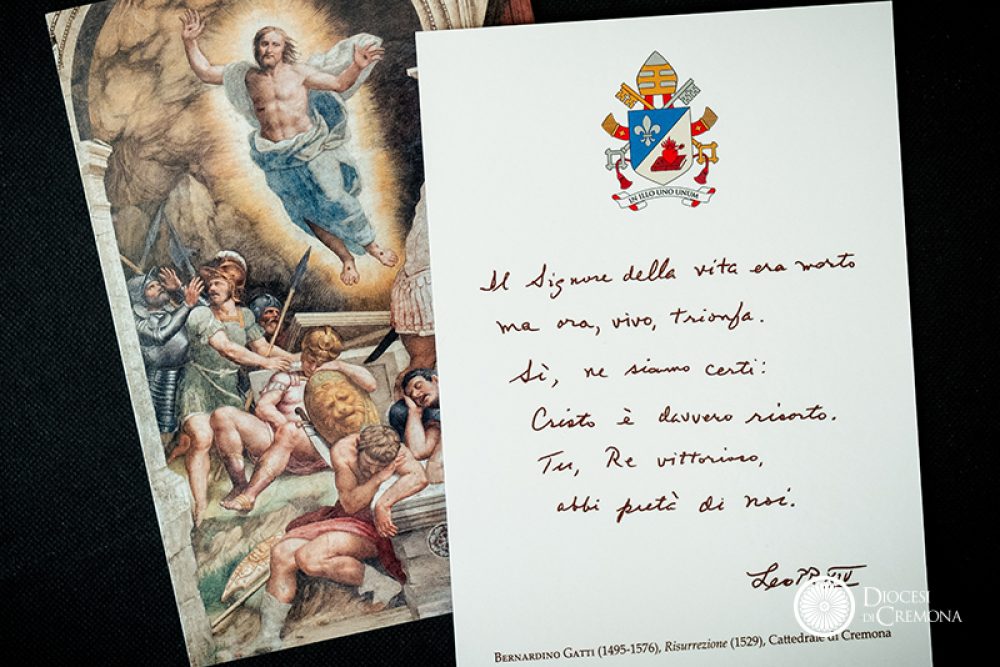 IN ILLO UNO UNUM
Il Signore della vita era morto
ma ora, vivo, trionfa.
Sì, ne siamo certi:
Cristo è davvero risorto.
Tu, Re vittorioso,
abbi pietà di noi.
Leo PP. XIV
DIOCESI
DI CREMONA
BERNARDINO GATTI (1495-1576), Risurrezione (1529), Cattedrale di Cremona